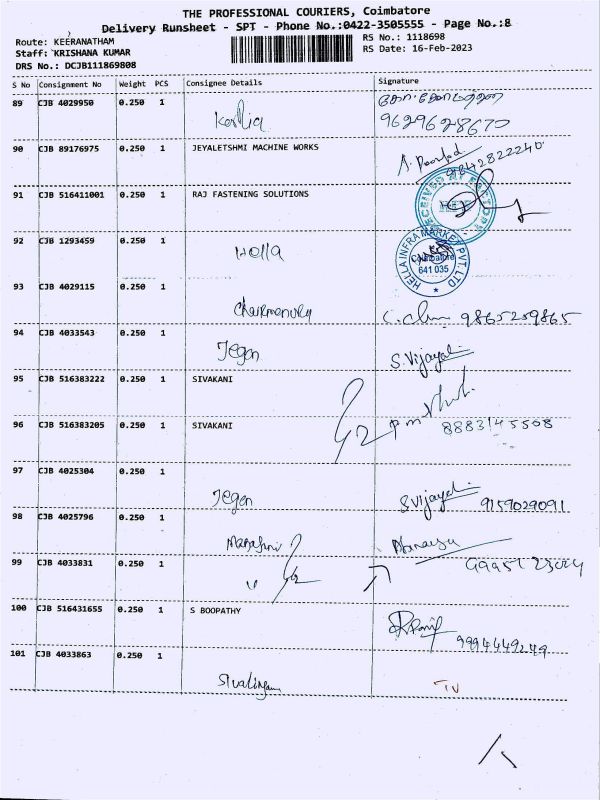 THE PROFESSIONAL COURIERS, Coimbatore
Delivery Runsheet - SPT - Phone No.:0422-3505555 - Page No.:8
Route: KEERANATHAM
RS No.: 1118698
Staff: KRISHANA KUMAR
RS Date: 16-Feb-2023
DRS No.: DCJB111869808
S No Consignment No Weight PCS Consignee Details Signature
89 CJB 4029950 0.250 1
9629628670
90 CJB 89176975 0.250 1 JEYALETSHMI MACHINE WORKS
9842822240
91 CJB 516411001 0.250 1 RAJ FASTENING SOLUTIONS
RECEIVED AT FACTORY
92 CJB 1293459 0.250 1 Holla
HELLA INFRA MARKET PVT. LTD
Coimbatore
641 035
93 CJB 4029115 0.250 1
9865259865
94 CJB 4033543 0.250 1 Jegan S. Vijayal
95 CJB 516383222 0.250 1 SIVAKANI
96 CJB 516383205 0.250 1 SIVAKANI
8883145508
97 CJB 4025304 0.250 1 Jegan S Vijayal 9159029091
98 CJB 4025796 0.250 1
99 CJB 4033831 0.250 1 "
100 CJB 516431655 0.250 1 S BOOPATHY
9994449249
101 CJB 4033863 0.250 1 Sivalingam TV